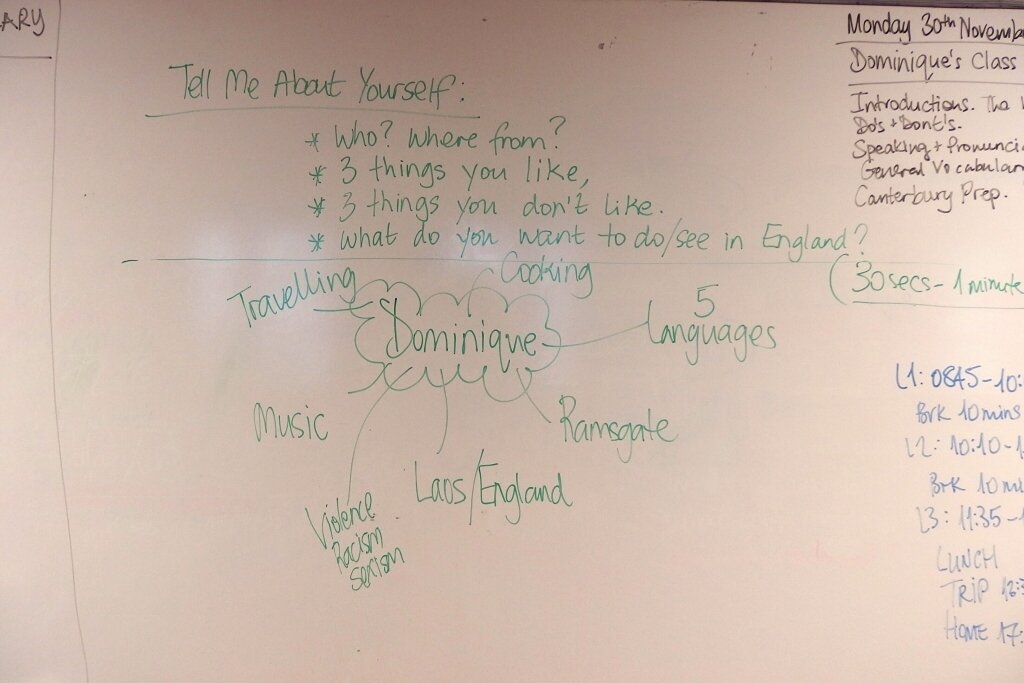 ARY
Tell Me About Yourself:
* Who? Where from?
* 3 things you like,
* 3 things you don't like.
* What do you want to do/see in England?
(30secs - 1 minute
Travelling
Cooking
Dominique
5
Languages
Music
Ramsgate
Laos/England
Violence
Racism
Sexism
Monday 30th Novemb
Dominique's Class
Introductions. The
Do's + Dont's.
Speaking + Pronunci
General Vocabular
Canterbury Prep.
L1: 0845 - 10:
Brk 10mins
L2: 10:10 - 1
Brk 10 mi
L3: 11:35 - 1
LUNCH
TRIP
HOME 17: